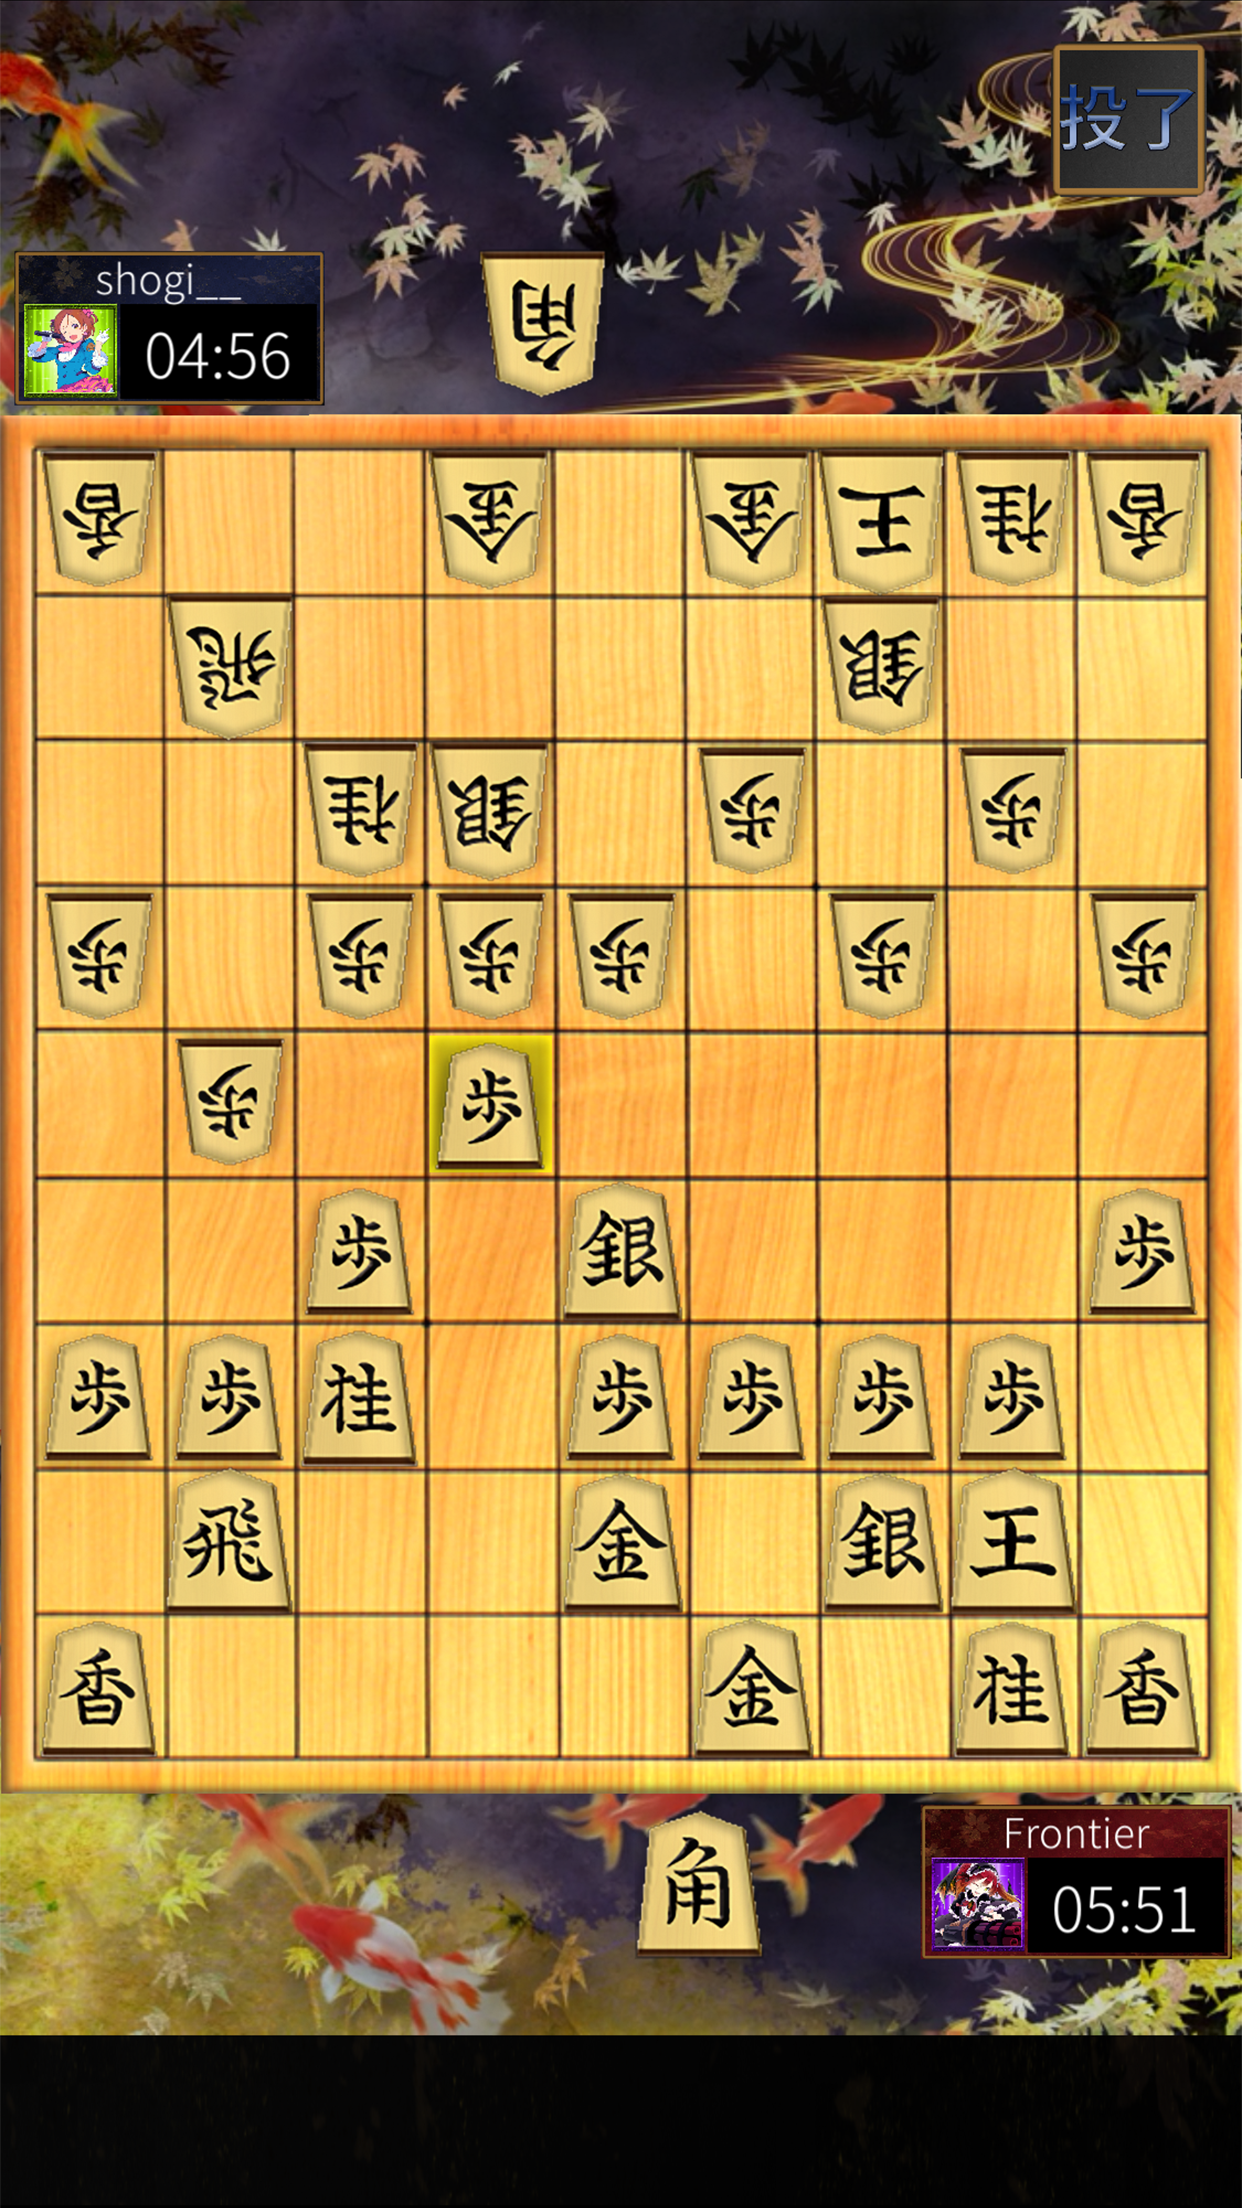 投了
shogi__
04:56
角
香 金 金 王 桂 香
飛 銀
桂 銀 歩 歩
歩 歩 歩 歩 歩 歩
歩 歩
歩 銀 歩
歩 歩 桂 歩 歩 歩 歩
飛 金 銀 王
香 金 桂 香
角
Frontier
05:51